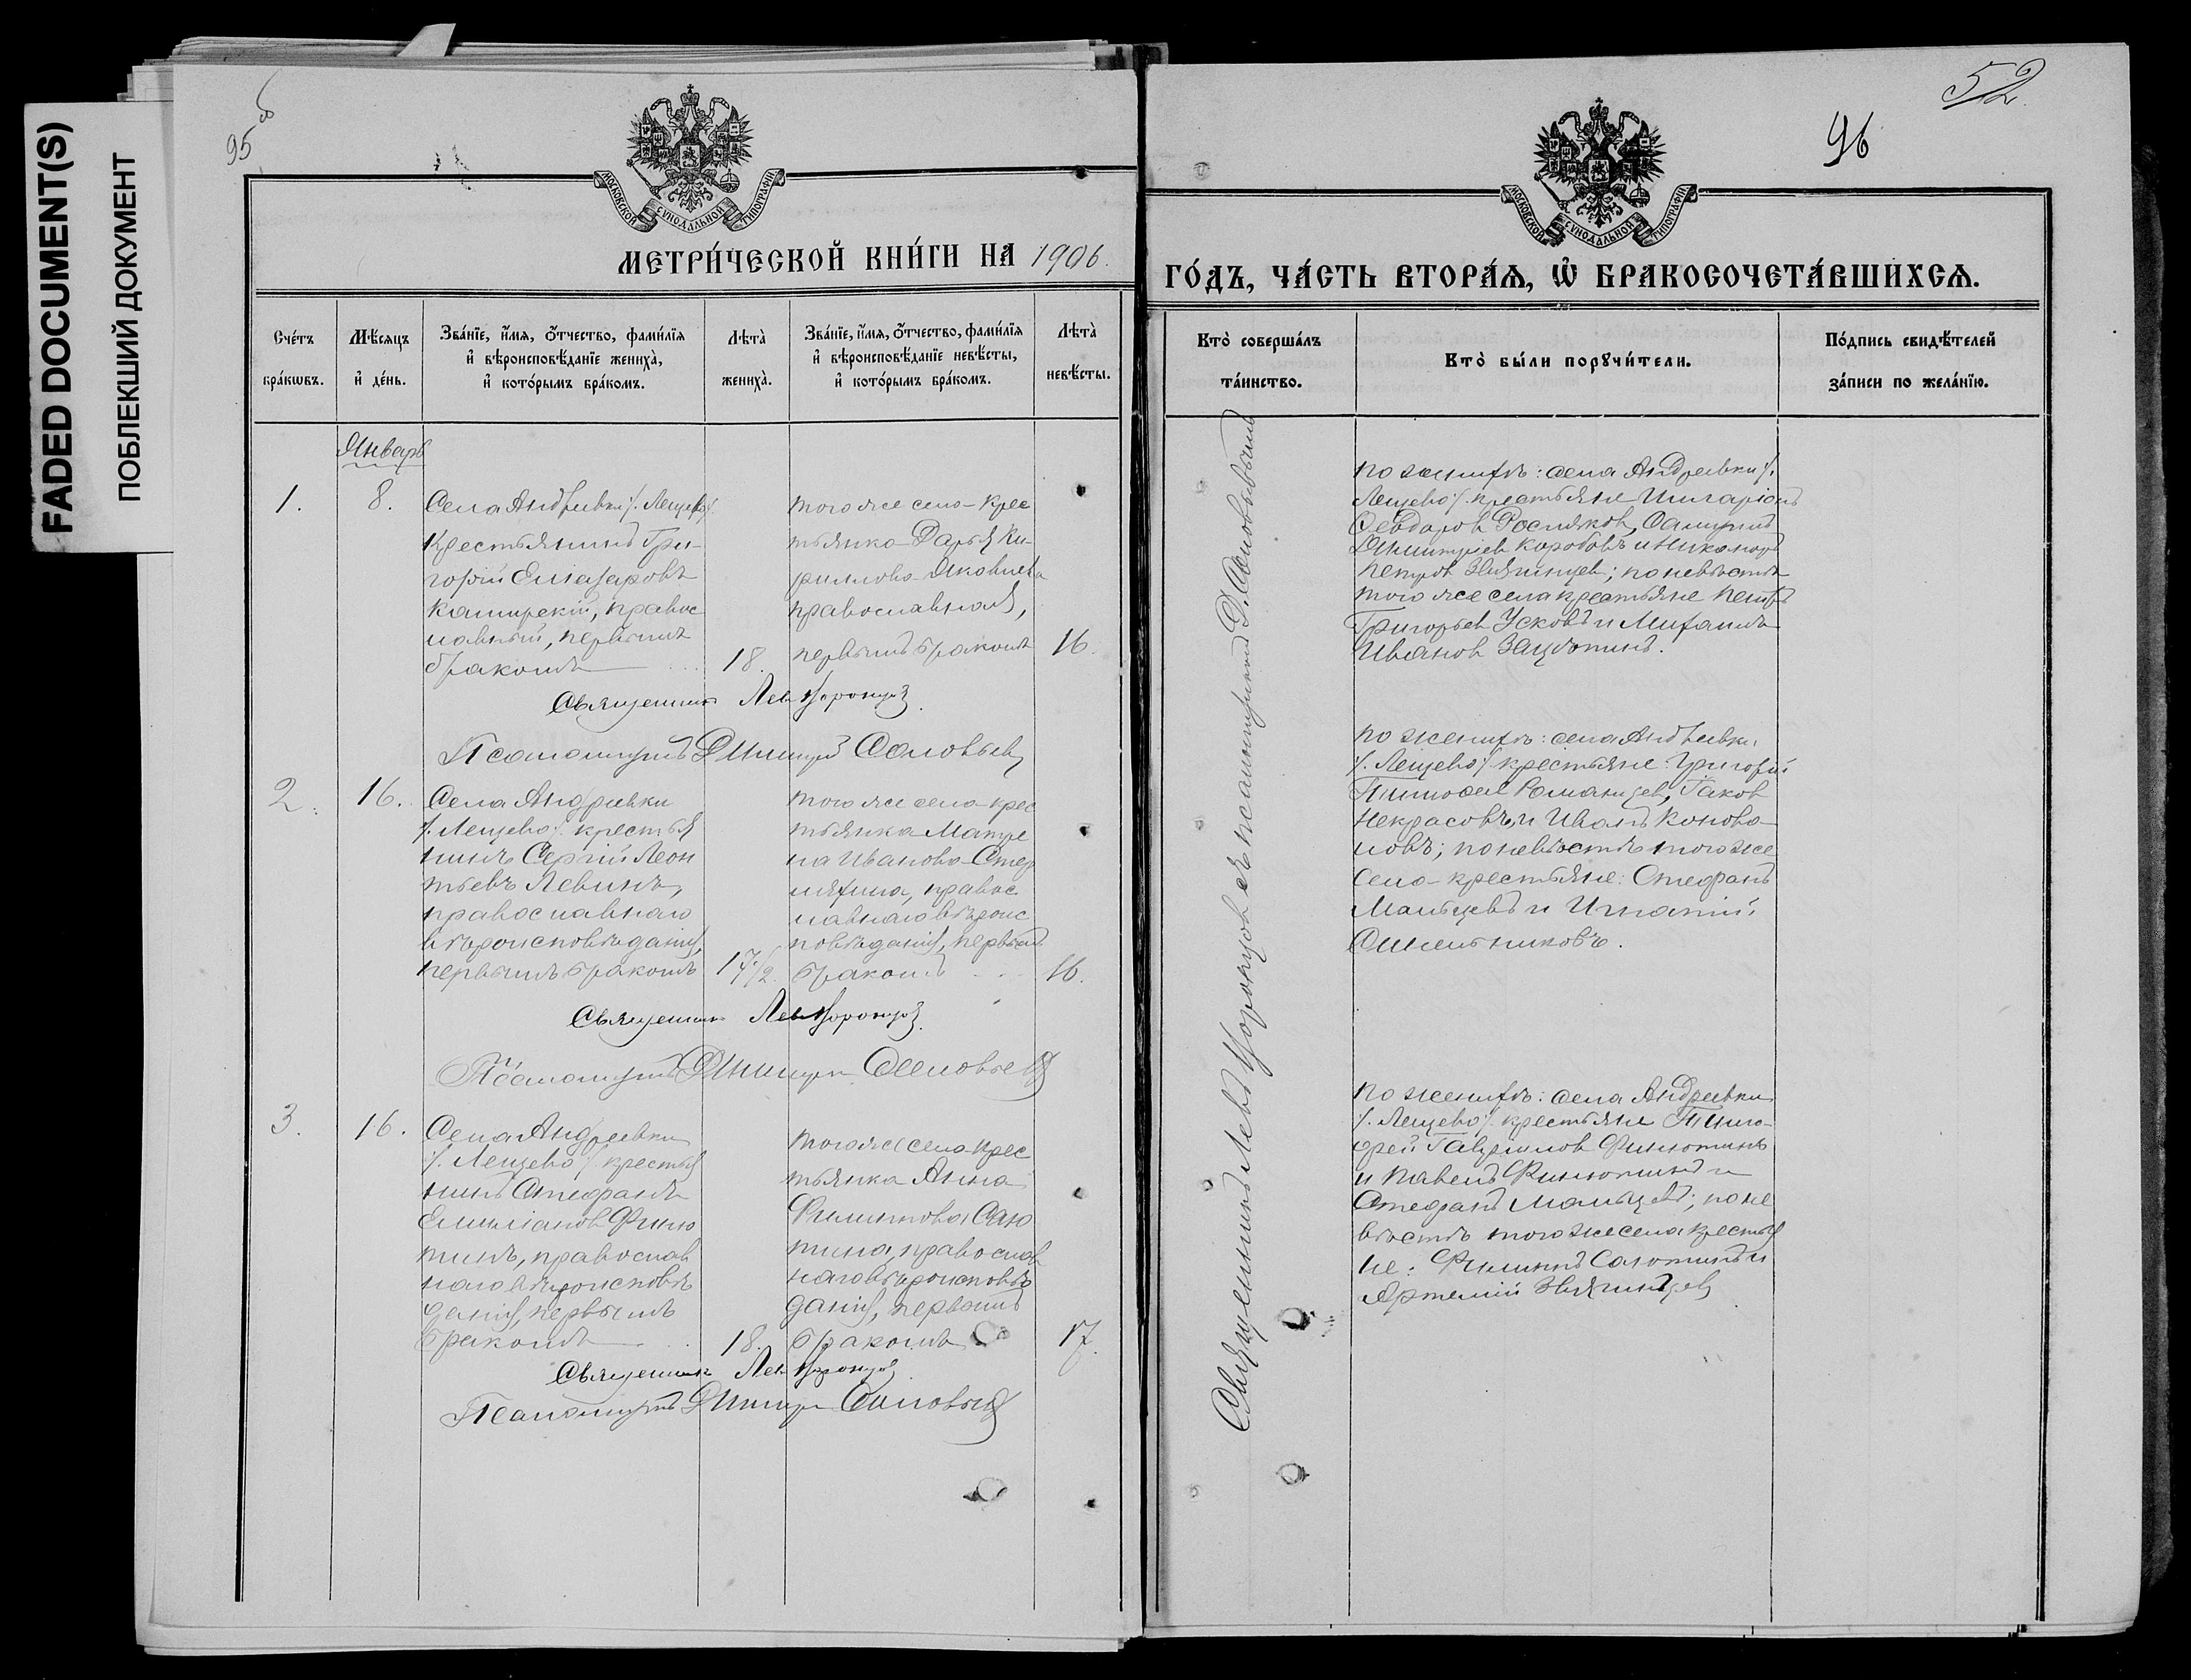 FADED DOCUMENT(S)
ПОБЛЕКШИЙ ДОКУМЕНТ
95 об
МОСКОВСКОЙ СѴНОДАЛЬНОЙ ТИПОГРАФІИ
МЕТРИ́ЧЕСКОЙ КНИ́ГИ НА 1906.
Сче́тъ
бра́кѡвъ.
Мѣ́сяцъ
и҆ де́нь.
Зва́нїе, и҆́мя, ѻ҆́тчество, фами́лїя
и҆ вѣроисповѣ́данїе жениха̀,
и҆ кото́рымъ бра́комъ.
Лѣта̀
жениха̀.
Зва́нїе, и҆́мя, ѻ҆́тчество, фами́лїя
и҆ вѣроисповѣ́данїе невѣ́сты,
и҆ кото́рымъ бра́комъ.
Лѣта̀
невѣ́сты.
Январь
1.
8.
Села Андреевки /. Лещево/.
крестьянинъ Гри-
горій Елазаровъ
Каширскій, правос
лавный, первымъ
бракомъ
18.
того же села крес
тьянка Дарья Ки-
риллова Яковлева
православная,
первымъ бракомъ
16.
Священникъ Левъ Воронцов.
Псаломщикъ Димитрій Соловьев
2.
16.
Села Андреевки
/. Лещево/. крестья
нинъ Сергій Леон
тьевъ Левинъ,
православнаго
вѣроисповѣданія,
первымъ бракомъ
17 1/2.
того же села крес
тьянка Матре
на Иванова
правос
лавнаго вѣроис
повѣданія, первымъ
бракомъ
16.
Священникъ Левъ Воронцов.
Псаломщикъ Димитрій Соловьев
3.
16.
Села Андреевки
/. Лещево/. крестья
нинъ Стефанъ
Емиліанов Филю
тинъ, православ
наго вѣроисповѣ
данія, первымъ
бракомъ
18.
того же села крес
тьянка Анна
Филиппова Саю
тина, православ
наго вѣроисповѣ
данія, первымъ
бракомъ
17.
Священникъ Левъ Воронцов
Псаломщикъ Димитрій Соловьев
52.
96
МОСКОВСКОЙ СѴНОДАЛЬНОЙ ТИПОГРАФІИ
ГО́ДЪ, ЧА́СТЬ ВТОРА́Я, Ѽ БРАКОСОЧЕТА́ВШИХСЯ.
Кто̀ соверша́лъ
та́инство.
Кто̀ бы́ли порꙋчи́тели.
По́дпись свидѣ́телей
за́писи по жела́нїю.
Священникъ Левъ Воронцов съ псаломщикомъ Д. Соловьевымъ
по женихѣ: села Андреевки /.
Лещево/. крестьяне Иларіонъ
Ѳеодоров Росляков,
Димитріев Коробовъ и Никаноръ
Петров Звягинцев; по невѣстѣ
того же села крестьяне Петръ
Григорьев Усковъ и Михаилъ
Иванов Зацепинъ.
по женихѣ: села Андреевки
/. Лещево/. крестьяне: Григорій
Тимоѳеев Романцев, Іаков
Некрасовъ, и Иванъ Конова
ловъ; по невѣстѣ того же
села крестьяне: Стефанъ
Мальцевъ и Игнатій
Синельниковъ.
по женихѣ: села Андреевки
/. Лещево/. крестьяне Тимо-
фей Гавриилов Филютинъ
и Павелъ Филютинъ и
Стефанъ Мальцевъ; по не
вѣстѣ того же села крестья
не: Филиппъ Саютинъ и
Артемій Звягинцев